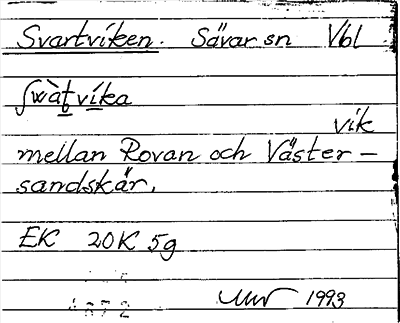 Svartviken. Sävar sn Vbl
vik
mellan Rovan och Väster-
sandskär.
EK 20K 5g
1993